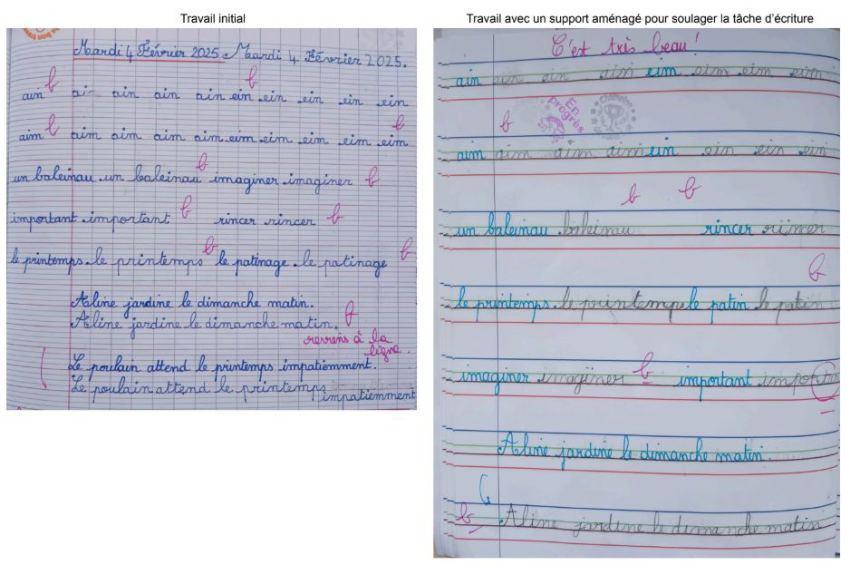 Travail initial
Mardi 4 Février 2025. Mardi 4 Février 2025.
ain ain ain ain ain ein ein ein ein ein
aim aim aim aim aim eim eim eim eim eim
un baleinau. un baleinau imaginer. imaginer
important. important rincer rincer
le printemps. le printemps le patinage. le patinage
Aline jardine le dimanche matin.
Aline jardine le dimanche matin.
reviens à la
ligne.
Le poulain attend le printemps impatiemment.
Le poulain attend le printemps
impatiemment
Travail avec un support aménagé pour soulager la tâche d'écriture
C'est très beau!
ain ain ain ain eim eim eim eim
En progrès
aim aim aim aim ein ein ein ein
un baleinau rincer
le printemps. le printemps le patin le patin
imaginer imaginer important
Aline jardine le dimanche matin.
Aline jardine le dimanche matin